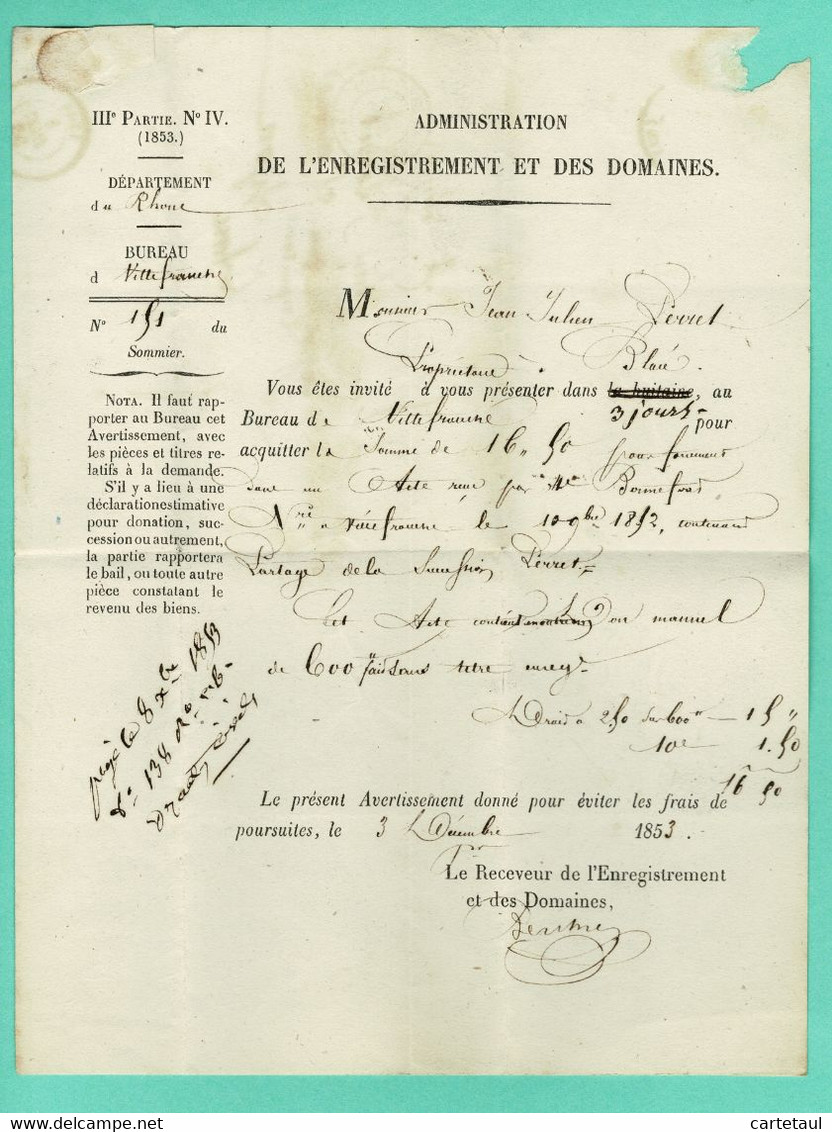 IIIe PARTIE. No IV.
(1853.)
DÉPARTEMENT
du Rhone
BUREAU
d Villefranche
No 151 du
Sommier.
NOTA. Il faut rap-
porter au Bureau cet
Avertissement, avec
les pièces et titres re-
latifs à la demande.
S'il y a lieu à une
déclaration estimative
pour donation, suc-
cession ou autrement,
la partie rapportera
le bail, ou toute autre
pièce constatant le
revenu des biens.
ADMINISTRATION
DE L'ENREGISTREMENT ET DES DOMAINES.
Monsieur Jean Julien Perret
Propriétaire à Blacé.
Vous êtes invité à vous présenter dans la huitaine, au
3 jours
Bureau de Villefranche pour
acquitter la Somme de 16 " 50 pour
dans un Acte reçu par Me Bonnefond
Nre à Villefranche le 10 9bre 1852, contenant
Partage de la Succession Perret
Cet Acte Don manuel
de 600 " fait sans titre enreg.
Droit à 2,50 sur 600 " 15 "
10e 1.50
16 50
Le présent Avertissement donné pour éviter les frais de
poursuites, le 3 Décembre 1853.
Le Receveur de l'Enregistrement
et des Domaines,
le 8 xbre 1853
138
cartetaul